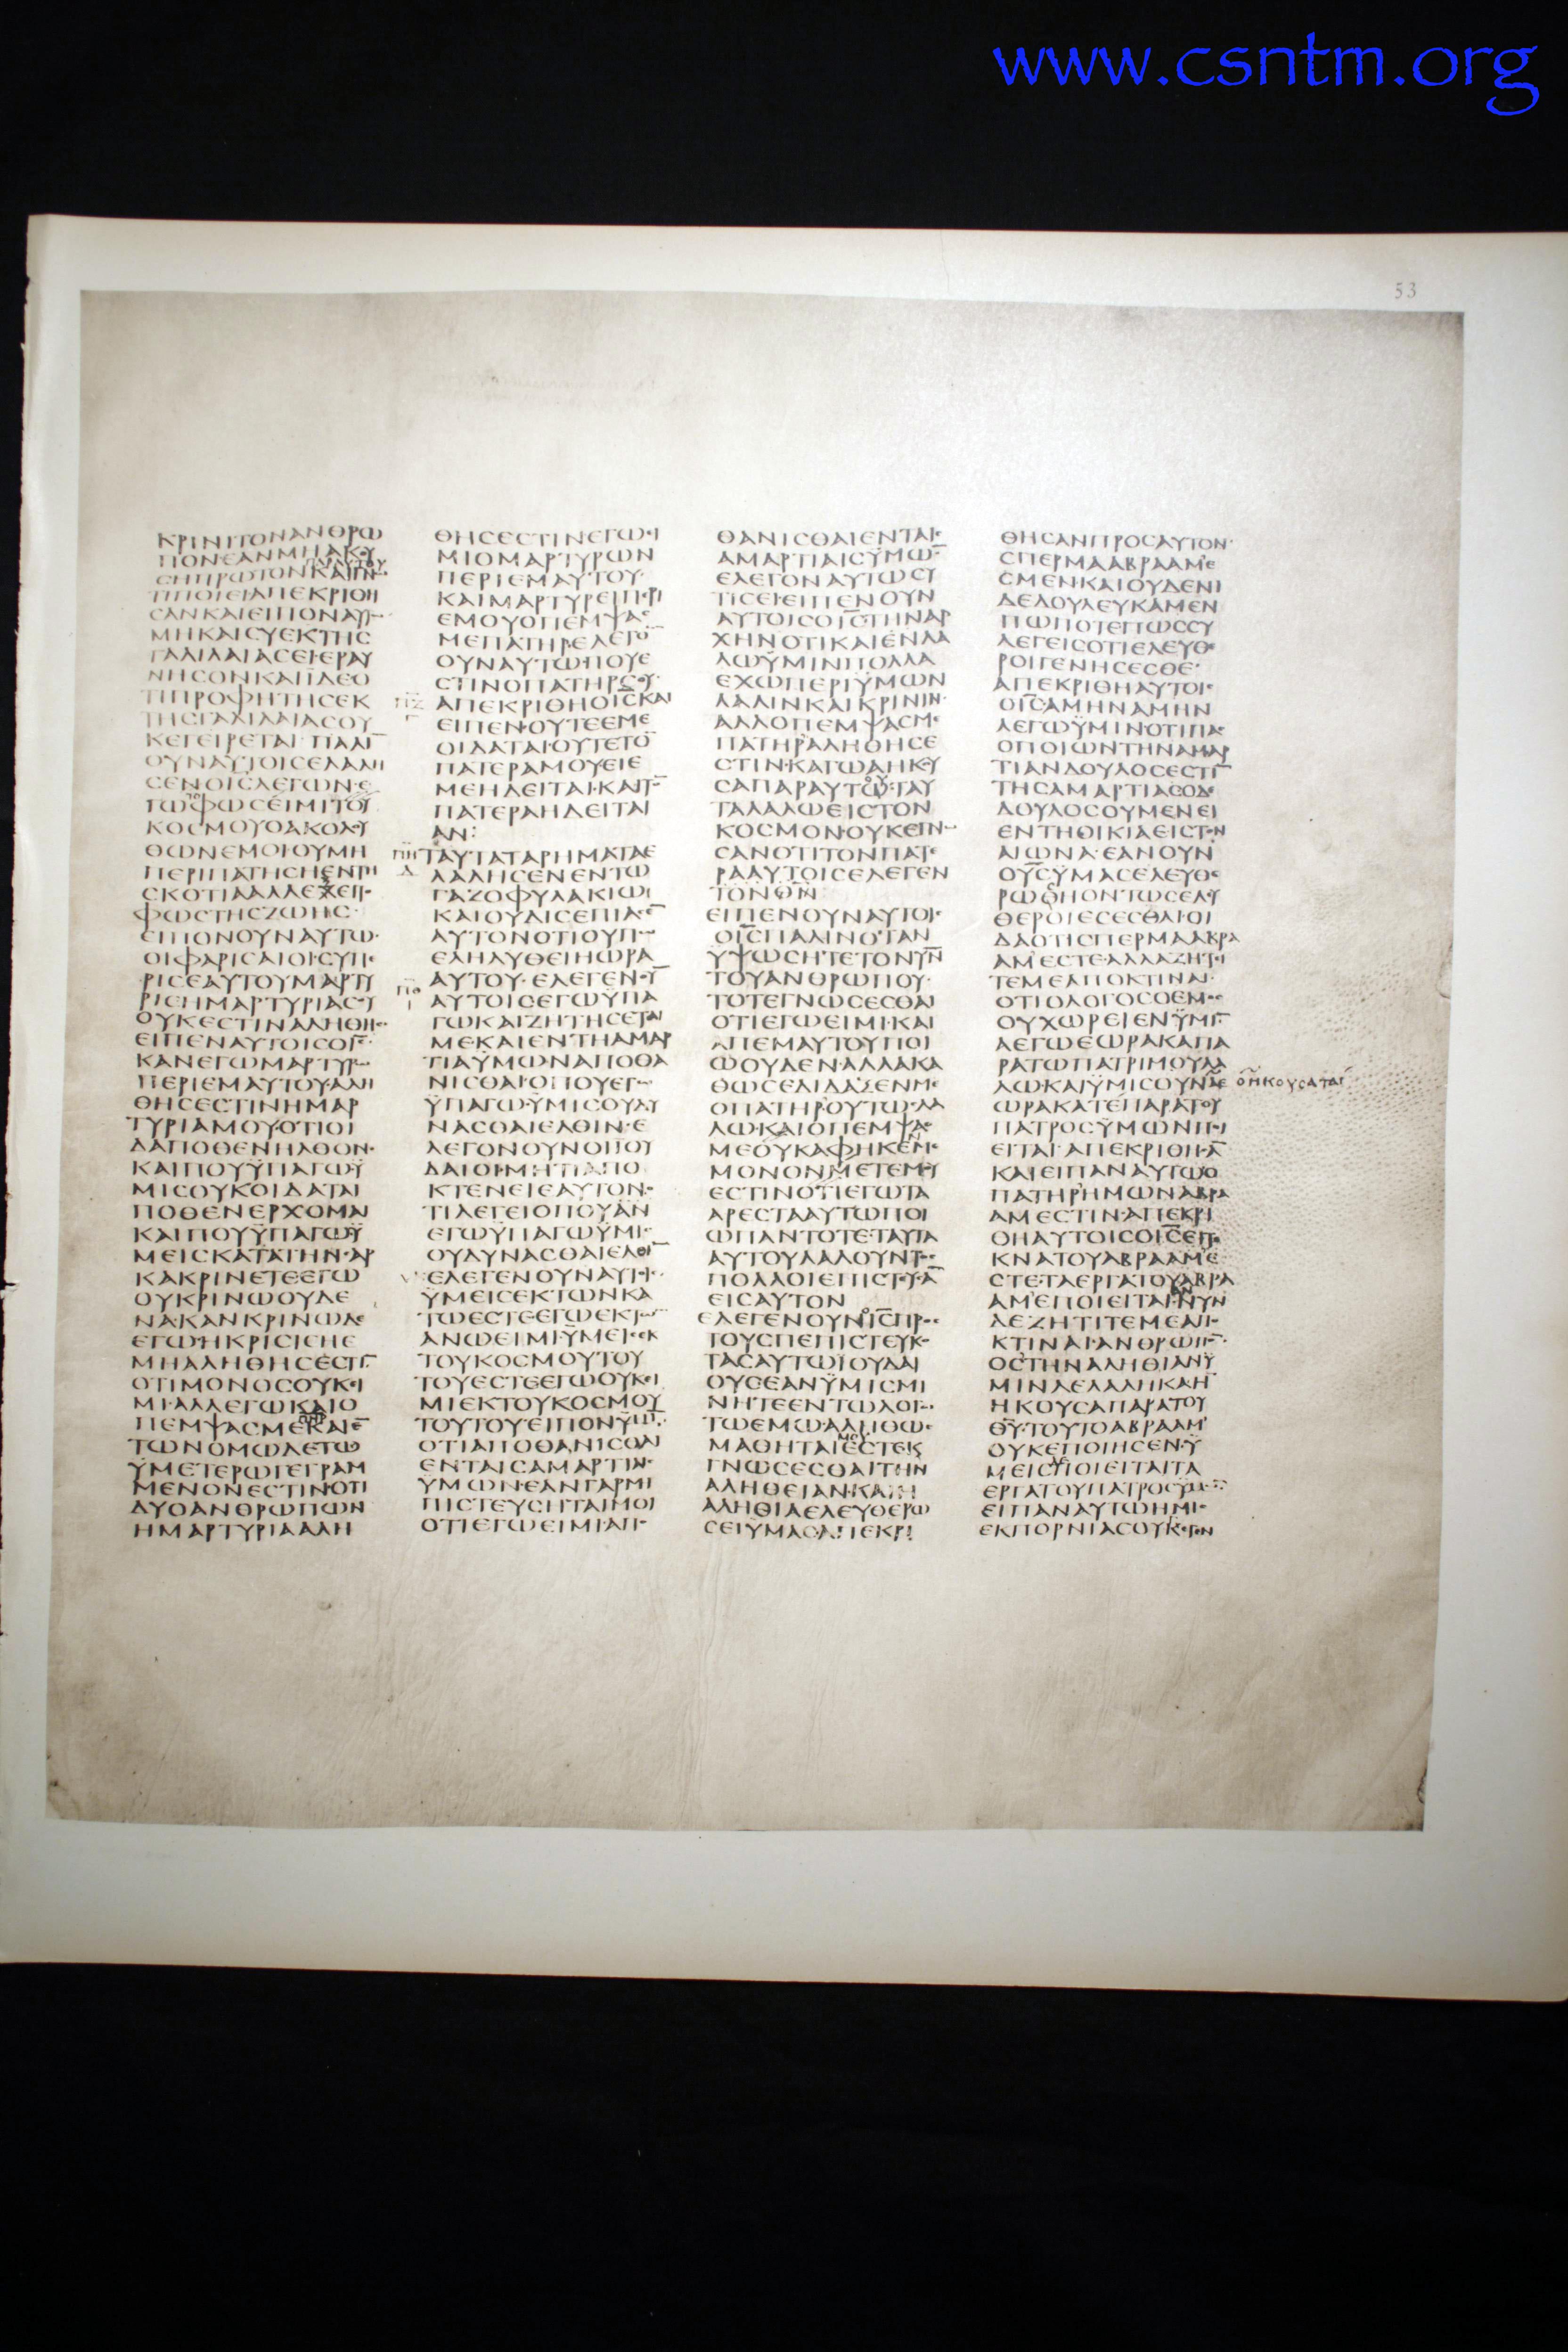 www.csntm.org
53
ΚΡΙΝΙΤΟΝΑΝΘΡΩ
ΠΟΝΕΑΝΜΗΑΚΟΥ
ΠΑΡΑΥΤΟΥ
ϹΗΠΡΩΤΟΝΚΑΙΓΝ
ΤΙΠΟΙΕΙΑΠΕΚΡΙΘΗ
ϹΑΝΚΑΙΕΙΠΟΝΑΥ
ΜΗΚΑΙϹΥΕΚΤΗϹ
ΓΑΛΙΛΑΙΑϹΕΙ·ΕΡΑΥ
ΝΗϹΟΝΚΑΙΪΔΕΟ
ΤΙΠΡΟΦΗΤΗϹΕΚ
ΤΗϹΓΑΛΙΛΑΙΑϹΟΥ
ΚΕΓΕΙΡΕΤΑΙ ΠΑΛΙ̅
ΟΥΝΑΥΤΟΙϹΕΛΑΛΙ
ϹΕΝΟΙ̅Ϲ̅ΛΕΓΩΝ·Ε
ΓΩΦΩϹΕΙΜΙΤΟΥ
ΚΟϹΜΟΥΟΑΚΟΛΟΥ
ΘΩΝΕΜΟΙ·ΟΥΜΗ
ΠΕΡΙΠΑΤΗϹΗΕΝΤΗ
ϹΚΟΤΙΑΑΛΛΕΧΕΙΤΟ
ΦΩϹΤΗϹΖΩΗϹ·
ΕΙΠΟΝΟΥΝΑΥΤΩ·
ΟΙΦΑΡΙϹΑΙΟΙ·ϹΥΠΕ
ΡΙϹΕΑΥΤΟΥΜΑΡΤΥ
ΡΙϹΗΜΑΡΤΥΡΙΑϹΟΥ
ΟΥΚΕϹΤΙΝΑΛΗΘΗϹ
ΕΙΠΕΝΑΥΤΟΙϹΟΙ̅Ϲ̅
ΚΑΝΕΓΩΜΑΡΤΥΡΩ
ΠΕΡΙΕΜΑΥΤΟΥ·ΑΛΗ
ΘΗϹΕϹΤΙΝΗΜΑΡ
ΤΥΡΙΑΜΟΥ·ΟΤΙΟΙ
ΔΑΠΟΘΕΝΗΛΘΟΝ·
ΚΑΙΠΟΥΫΠΑΓΩΫ
ΜΙϹΟΥΚΟΙΔΑΤΑΙ
ΠΟΘΕΝΕΡΧΟΜΑΙ
ΚΑΙΠΟΥΫΠΑΓΩΫ
ΜΕΙϹΚΑΤΑΤΗΝϹΑΡ
ΚΑΚΡΙΝΕΤΕΕΓΩ
ΟΥΚΡΙΝΩΟΥΔΕ
ΝΑ·ΚΑΝΚΡΙΝΩΔΕ
ΕΓΩ·ΗΚΡΙϹΙϹΗΕ
ΜΗΑΛΗΘΗϹΕϹΤΙ̅
ΟΤΙΜΟΝΟϹΟΥΚΕΙ
ΜΙ·ΑΛΛΕΓΩΚΑΙΟ
ΠΗΡ
ΠΕΜΨΑϹΜΕΚΑΙΕ̅
ΤΩΝΟΜΩΔΕΤΩ
ΫΜΕΤΕΡΩΓΕΓΡΑΜ
ΜΕΝΟΝΕϹΤΙΝΟΤΙ
ΔΥΟΑΝΘΡΩΠΩΝ
ΗΜΑΡΤΥΡΙΑΑΛΗ
ΘΗϹΕϹΤΙΝΕΓΩΕΙ
ΜΙΟΜΑΡΤΥΡΩΝ
ΠΕΡΙΕΜΑΥΤΟΥ·
ΚΑΙΜΑΡΤΥΡΕΙΠΕΡΙ
ΕΜΟΥΟΠΕΜΨΑϹ
ΜΕΠΑΤΗΡΕΛΕΓΟ̅
ΟΥΝΑΥΤΩ·ΠΟΥΕ
ϹΤΙΝΟΠΑΤΗΡϹΟΥ·
ΠΖ ΑΠΕΚΡΙΘΗΟΙ̅Ϲ̅ΚΑΙ
Γ ΕΙΠΕΝ·ΟΥΤΕΕΜΕ
ΟΙΔΑΤΑΙ·ΟΥΤΕΤΟ̅
ΠΑΤΕΡΑΜΟΥΕΙΕ
ΜΕΗΔΕΙΤΑΙ·ΚΑΙΤΟ̅
ΠΑΤΕΡΑΗΔΕΙΤΑΙ
ΑΝ:
ΠΗ ΤΑΥΤΑΤΑΡΗΜΑΤΑΕ
Α ΛΑΛΗϹΕΝΕΝΤΩ
ΓΑΖΟΦΥΛΑΚΙΩ
ΚΑΙΟΥΔΙϹΕΠΙΑϹΕ̅
ΑΥΤΟΝΟΤΙΟΥΠΩ
ΕΛΗΛΥΘΕΙΗΩΡΑ
ΑΥΤΟΥ·ΕΛΕΓΕΝΟΥ̅
ΠΘ ΑΥΤΟΙϹΕΓΩΫΠΑ
Ι ΓΩΚΑΙΖΗΤΗϹΕΤΑΙ
ΜΕΚΑΙΕΝΤΗΑΜΑΡ
ΤΙΑΫΜΩΝΑΠΟΘΑ
ΝΙϹΘΑΙ·ΟΠΟΥΕΓΩ
ΫΠΑΓΩ·ΫΜΙϹΟΥΔΥ
ΝΑϹΘΑΙΕΛΘΙΝ·Ε
ΛΕΓΟΝΟΥΝΟΙΪΟΥ
ΔΑΙΟΙ·ΜΗΤΙΑΠΟ
ΚΤΕΝΕΙΕΑΥΤΟΝ·
ΤΙΛΕΓΕΙΟΠΟΥΑΝ
ΕΓΩΫΠΑΓΩΫΜΙϹ
ΟΥΔΥΝΑϹΘΑΙΕΛΘΙ̅
ΕΛΕΓΕΝΟΥΝΑΥΤΟΙϹ
ΫΜΕΙϹΕΚΤΩΝΚΑ
ΤΩΕϹΤΕ·ΕΓΩΕΚΤΩ̅
ΑΝΩΕΙΜΙ·ΫΜΕΙϹΕΚ
ΤΟΥΚΟϹΜΟΥΤΟΥ
ΤΟΥΕϹΤΕ·ΕΓΩΟΥΚΕΙ
ΜΙΕΚΤΟΥΚΟϹΜΟΥ
ΤΟΥΤΟΥ·ΕΙΠΟΝΫΜΙ̅
ΟΤΙΑΠΟΘΑΝΙϹΘΑΙ
ΕΝΤΑΙϹΑΜΑΡΤΙΑΙϹ
ΫΜΩΝ·ΕΑΝΓΑΡΜΗ
ΠΙϹΤΕΥϹΗΤΑΙΜΟΙ
ΟΤΙΕΓΩΕΙΜΙ·ΑΠΟ
ΘΑΝΙϹΘΑΙΕΝΤΑΙϹ
ΑΜΑΡΤΙΑΙϹΫΜΩ̅
ΕΛΕΓΟΝΑΥΤΩϹΥ
ΤΙϹΕΙ·ΕΙΠΕΝΟΥΝ
ΑΥΤΟΙϹΟΙ̅Ϲ̅ΤΗΝΑΡ
ΧΗΝΟΤΙΚΑΙΕΝΛΑ
ΛΩΫΜΙΝΠΟΛΛΑ
ΕΧΩΠΕΡΙΫΜΩΝ
ΛΑΛΙΝΚΑΙΚΡΙΝΙΝ·
ΑΛΛΟΠΕΜΨΑϹΜΕ
ΠΑΤΗΡΑΛΗΘΗϹΕ
ϹΤΙΝ·ΚΑΓΩΑΗΚΟΥ
ϹΑΠΑΡΑΥΤΩ·ΤΑΥ
ΤΑΛΑΛΩΕΙϹΤΟΝ
ΚΟϹΜΟΝ·ΟΥΚΕΓΝΩ
ϹΑΝΟΤΙΤΟΝΠΑΤΕ
ΡΑΑΥΤΟΙϹΕΛΕΓΕΝ
ΤΟΝΘ̅Ν̅
ΕΙΠΕΝΟΥΝΑΥΤΟΙϹ
ΟΙ̅Ϲ̅ΠΑΛΙΝΟΤΑΝ
ΫΨΩϹΗΤΕΤΟΝΥ̅Ν̅
ΤΟΥΑΝΘΡΩΠΟΥ·
ΤΟΤΕΓΝΩϹΕϹΘΑΙ
ΟΤΙΕΓΩΕΙΜΙ·ΚΑΙ
ΑΠΕΜΑΥΤΟΥΠΟΙ
ΩΟΥΔΕΝ·ΑΛΛΑΚΑ
ΘΩϹΕΔΙΔΑΞΕΝΜΕ
ΟΠΑΤΗΡ·ΟΥΤΩϹΛΑ
ΛΩ·ΚΑΙΟΠΕΜΨΑϹ
ΜΕΟΥΚΑΦΗΚΕΝΜΕ
ΜΟΝΟΝΜΕΤΕΜΟΥ
ΕϹΤΙΝΟΤΙΕΓΩΤΑ
ΑΡΕϹΤΑΑΥΤΩΠΟΙ
ΩΠΑΝΤΟΤΕ·ΤΑΥΤΑ
ΑΥΤΟΥΛΑΛΟΥΝΤΟϹ
ΠΟΛΛΟΙΕΠΙϹΤΕΥϹΑ̅
ΕΙϹΑΥΤΟΝ
ΕΛΕΓΕΝΟΥΝΟΙ̅Ϲ̅ΠΡΟϹ
ΤΟΥϹΠΕΠΙϹΤΕΥΚΟ
ΤΑϹΑΥΤΩΪΟΥΔΑΙ
ΟΥϹΕΑΝΫΜΙϹΜΙ
ΝΗΤΕΕΝΤΩΛΟΓΩ
ΤΩΕΜΩ·ΑΛΗΘΩϹ
ΜΟΥ
ΜΑΘΗΤΑΙΕϹΤΕΚ
ΓΝΩϹΕϹΘΑΙΤΗΝ
ΑΛΗΘΕΙΑΝ·ΚΑΙΗ
ΑΛΗΘΙΑΕΛΕΥΘΕΡΩ
ϹΕΙΫΜΑϹ·ΑΠΕΚΡΙ
ΘΗϹΑΝΠΡΟϹΑΥΤΟΝ·
ϹΠΕΡΜΑΑΒΡΑΑΜΕ
ϹΜΕΝΚΑΙΟΥΔΕΝΙ
ΔΕΔΟΥΛΕΥΚΑΜΕΝ
ΠΩΠΟΤΕΠΩϹϹΥ
ΛΕΓΕΙϹΟΤΙΕΛΕΥΘΕ
ΡΟΙΓΕΝΗϹΕϹΘΕ·
ΑΠΕΚΡΙΘΗΑΥΤΟΙϹ
ΟΙ̅Ϲ̅·ΑΜΗΝΑΜΗΝ
ΛΕΓΩΫΜΙΝΟΤΙΠΑϹ
ΟΠΟΙΩΝΤΗΝΑΜΑΡ
ΤΙΑΝΔΟΥΛΟϹΕϹΤΙ̅
ΤΗϹΑΜΑΡΤΙΑϹΟΔΕ
ΔΟΥΛΟϹΟΥΜΕΝΕΙ
ΕΝΤΗΟΙΚΙΑΕΙϹΤΟΝ
ΑΙΩΝΑ·ΕΑΝΟΥΝ
ΟΥ̅Ϲ̅ΫΜΑϹΕΛΕΥΘΕ
ΡΩϹΗΟΝΤΩϹΕΛΕΥ
ΘΕΡΟΙΕϹΕϹΘΑΙ·ΟΙ
ΔΑΟΤΙϹΠΕΡΜΑΑΒΡΑ
ΑΜΕϹΤΕ·ΑΛΛΑΖΗΤΕΙ
ΤΕΜΕΑΠΟΚΤΙΝΑΙ·
ΟΤΙΟΛΟΓΟϹΟΕΜΟϹ
ΟΥΧΩΡΕΙΕΝΫΜΙ̅
ΛΕΓΩΕΩΡΑΚΑΠΑ
ΡΑΤΩΠΑΤΡΙΜΟΥΛΑ
ΛΩΚΑΙΫΜΙϹΟΥΝΕ
ΟΗΚΟΥϹΑΤΑΙ
ΩΡΑΚΑΤΕΠΑΡΑΤΟΥ
ΠΑΤΡΟϹΫΜΩΝΠΟΙ
ΕΙΤΑΙ·ΑΠΕΚΡΙΘΗϹΑ̅
ΚΑΙΕΙΠΑΝΑΥΤΩΟ
ΠΑΤΗΡΗΜΩΝΑΒΡΑ
ΑΜΕϹΤΙΝ·ΑΠΕΚΡΙ
ΘΗΑΥΤΟΙϹΟΙ̅Ϲ̅ΕΙΤΕ
ΚΝΑΤΟΥΑΒΡΑΑΜΕ
ϹΤΕ·ΤΑΕΡΓΑΤΟΥΑΒΡΑ
ΑΜΕΠΟΙΕΙΤΑΙ·ΝΥΝ
ΔΕΖΗΤΙΤΕΜΕΑΠΟ
ΚΤΙΝΑΙ·ΑΝΘΡΩΠΟ̅
ΟϹΤΗΝΑΛΗΘΙΑΝΫ
ΜΙΝΛΕΛΑΛΗΚΑΗ
ΗΚΟΥϹΑΠΑΡΑΤΟΥ
Θ̅Υ̅·ΤΟΥΤΟΑΒΡΑΑΜ
ΟΥΚΕΠΟΙΗϹΕΝ·Ϋ
ΜΕΙϹΠΟΙΕΙΤΑΙΤΑ
ΕΡΓΑΤΟΥΠΑΤΡΟϹΫΜΩ̅
ΕΙΠΑΝΑΥΤΩΗΜΙϹ
ΕΚΠΟΡΝΙΑϹΟΥΚΕΓΕΝ